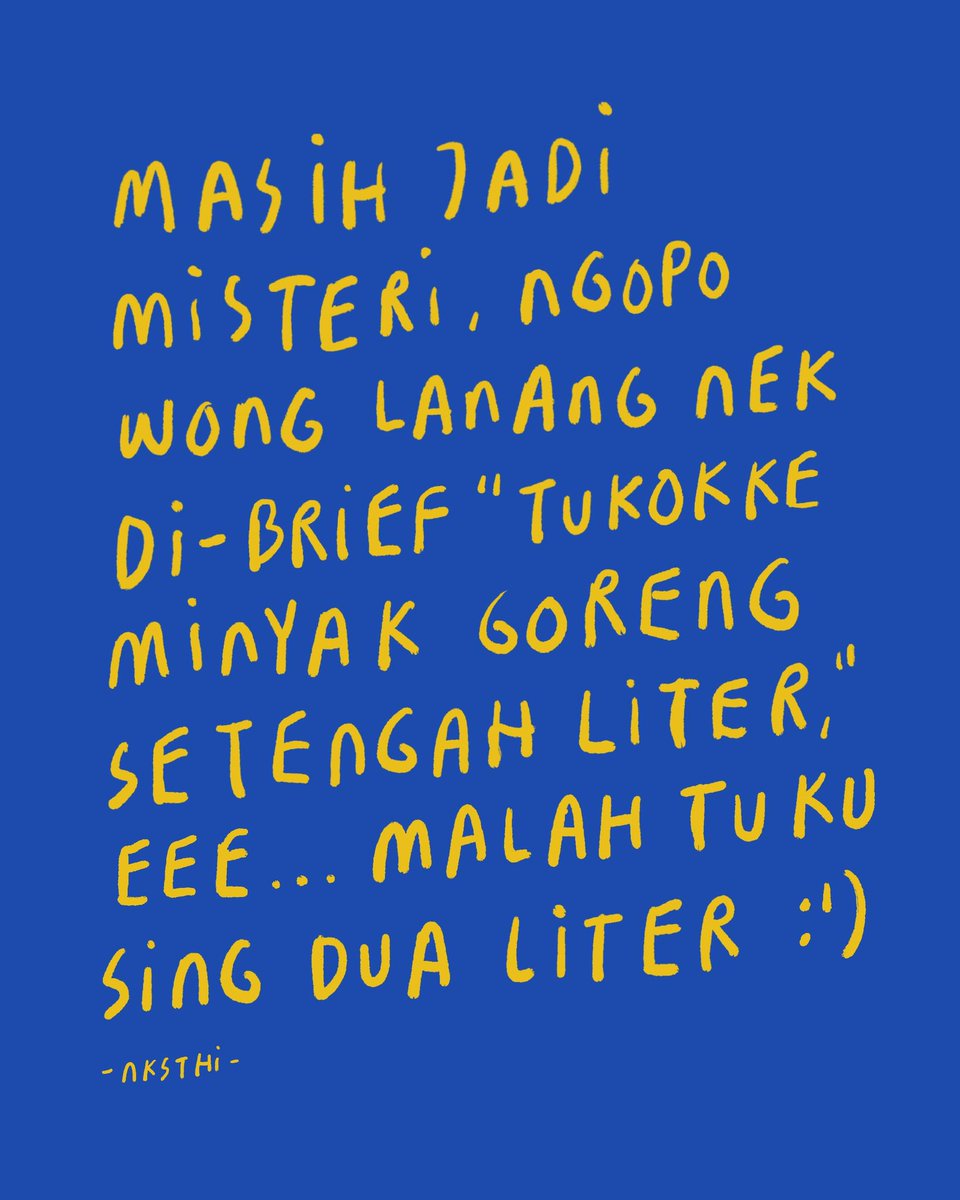 MASiH JADi
MiSTERi, NGOPO
WONG LANANG NEK
Di-BRiEF "TUKOKKE
MiNYAK GORENG
SETENGAH LiTER,"
EEE... MALAH TUKU
SiNG DUA LiTER :')
-NKSTHi-